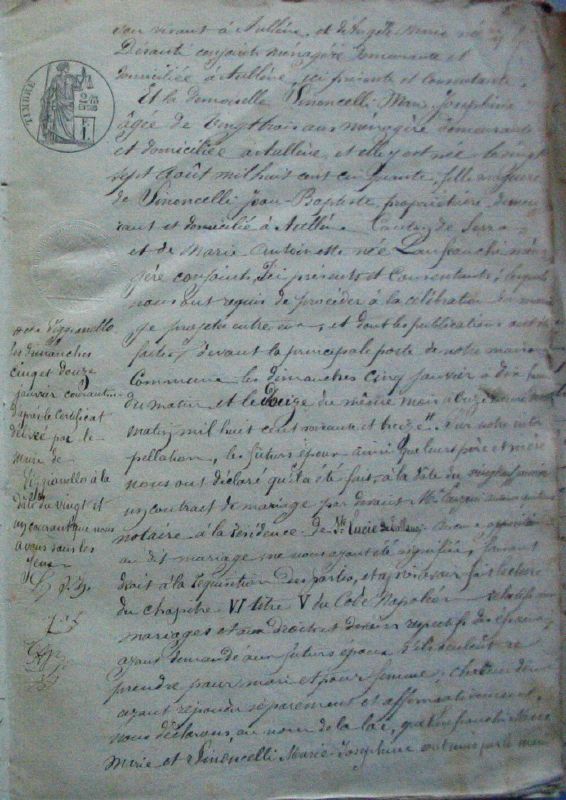 son vivant à Aullène, et d'Angèle Marie née
Desanti conjoints ménagère demeurante et
domiciliée à Aullène, ici présente et consentante.
TIMBRE
Et la demoiselle Simoncelli Marie Joséphine
âgée de vingt trois ans ménagère demeurante
et domiciliée à Aullène, et elle y est née le vingt
sept août mil huit cent cinquante, fille majeure
de Simoncelli Jean-Baptiste propriétaire, demeu
rant et domicilié à Aullène Canton de Serra
et de Marie Antoinette née Lanfranchi ména
gère conjoints, ici présents et consentants; lesquels
nous ont requis de procéder à la célébration du mariage
projeté entre eux, et dont les publications ont été
faites devant la principale porte de notre maison
Commune les dimanches cinq janvier à dix heures
du matin et le douze du même mois à onze heures
matin mil huit cent soixante et treize. Sur notre inter
pellation, les futurs époux ainsi que leurs père et mère
nous ont déclaré qu'il a été fait, à la date du vingt janvier
un contrat de mariage par devant Me
notaire à la résidence de Ste Lucie de Tallano. Aucune opposition
au dit mariage ne nous ayant été signifiée, faisant
droit à la réquisition des parties, et après avoir fait lecture
du chapitre VI titre V du Code Napoléon relatif aux
mariages et aux droits et devoirs respectifs des époux,
ayant demandé aux futurs époux s'ils veulent se
prendre pour mari et pour femme, chacun d'eux
ayant répondu séparément et affirmativement,
nous déclarons, au nom de la loi, que Lanfranchi
Marie et Simoncelli Marie-Joséphine sont unis par le mari
et à Viggianello
les dimanches
cinq et douze
janvier courant
d'après le certificat
délivré par le
maire de
Viggianello à la
date du vingt et
un courant que nous
avons sous les
yeux